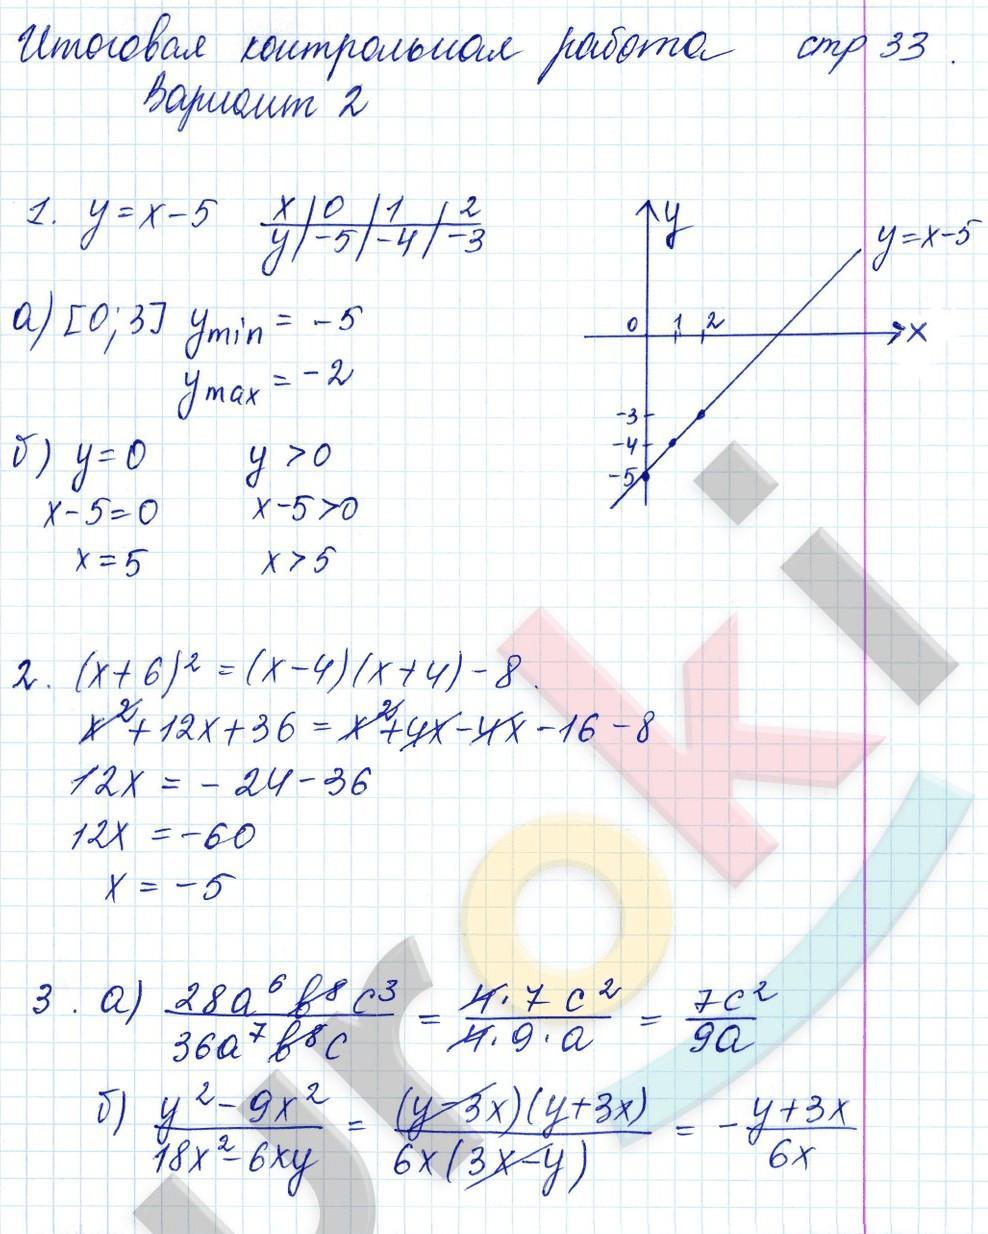 Итоговая контрольная работа стр 33.
Вариант 2
1. y = x - 5
x | 0 | 1 | 2
y | -5 | -4 | -3
y
y = x - 5
0 1 2 x
-3
-4
-5
а) [0; 3] ymin = -5
ymax = -2
б) y = 0 y > 0
x - 5 = 0 x - 5 > 0
x = 5 x > 5
2. (x + 6)² = (x - 4)(x + 4) - 8.
x² + 12x + 36 = x² + 4x - 4x - 16 - 8
12x = -24 - 36
12x = -60
x = -5
3. а) 28a⁶b⁸c³ / 36a⁷b⁸c = 4·7c² / 4·9·a = 7c² / 9a
б) y² - 9x² / 18x² - 6xy = (y - 3x)(y + 3x) / 6x(3x - y) = - y + 3x / 6x
uroki